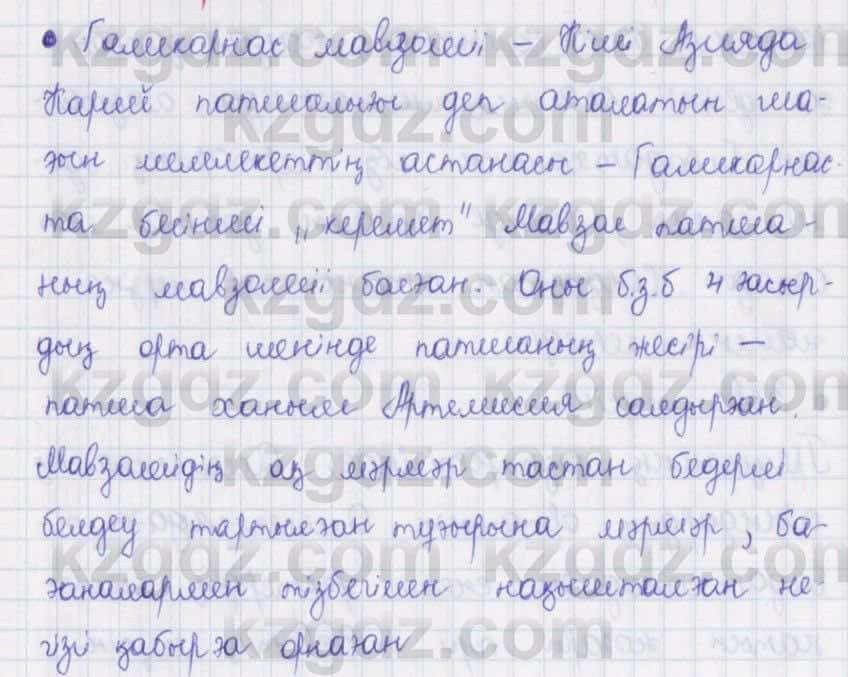 • Галикарнас мавзолейі – Кіші Азияда
Карий патшалығы деп аталатын ша-
ғын мемлекеттің астанасы – Галикарнас-
та бесінші „керемет" Мавзол патша-
ның мавзолейі болған. Оны б.з.б 4 ғасыр-
дың орта шенінде патшаның жесірі –
патша ханым Артемисия салдырған.
Мавзолейдің ақ мәрмәр тастан бедерлі
белдеу тартылған тұғырына мәрмәр, ба-
ғаналармен тізбегімен нақышталған не-
гізгі қабырға орнаған
kzgdz.com